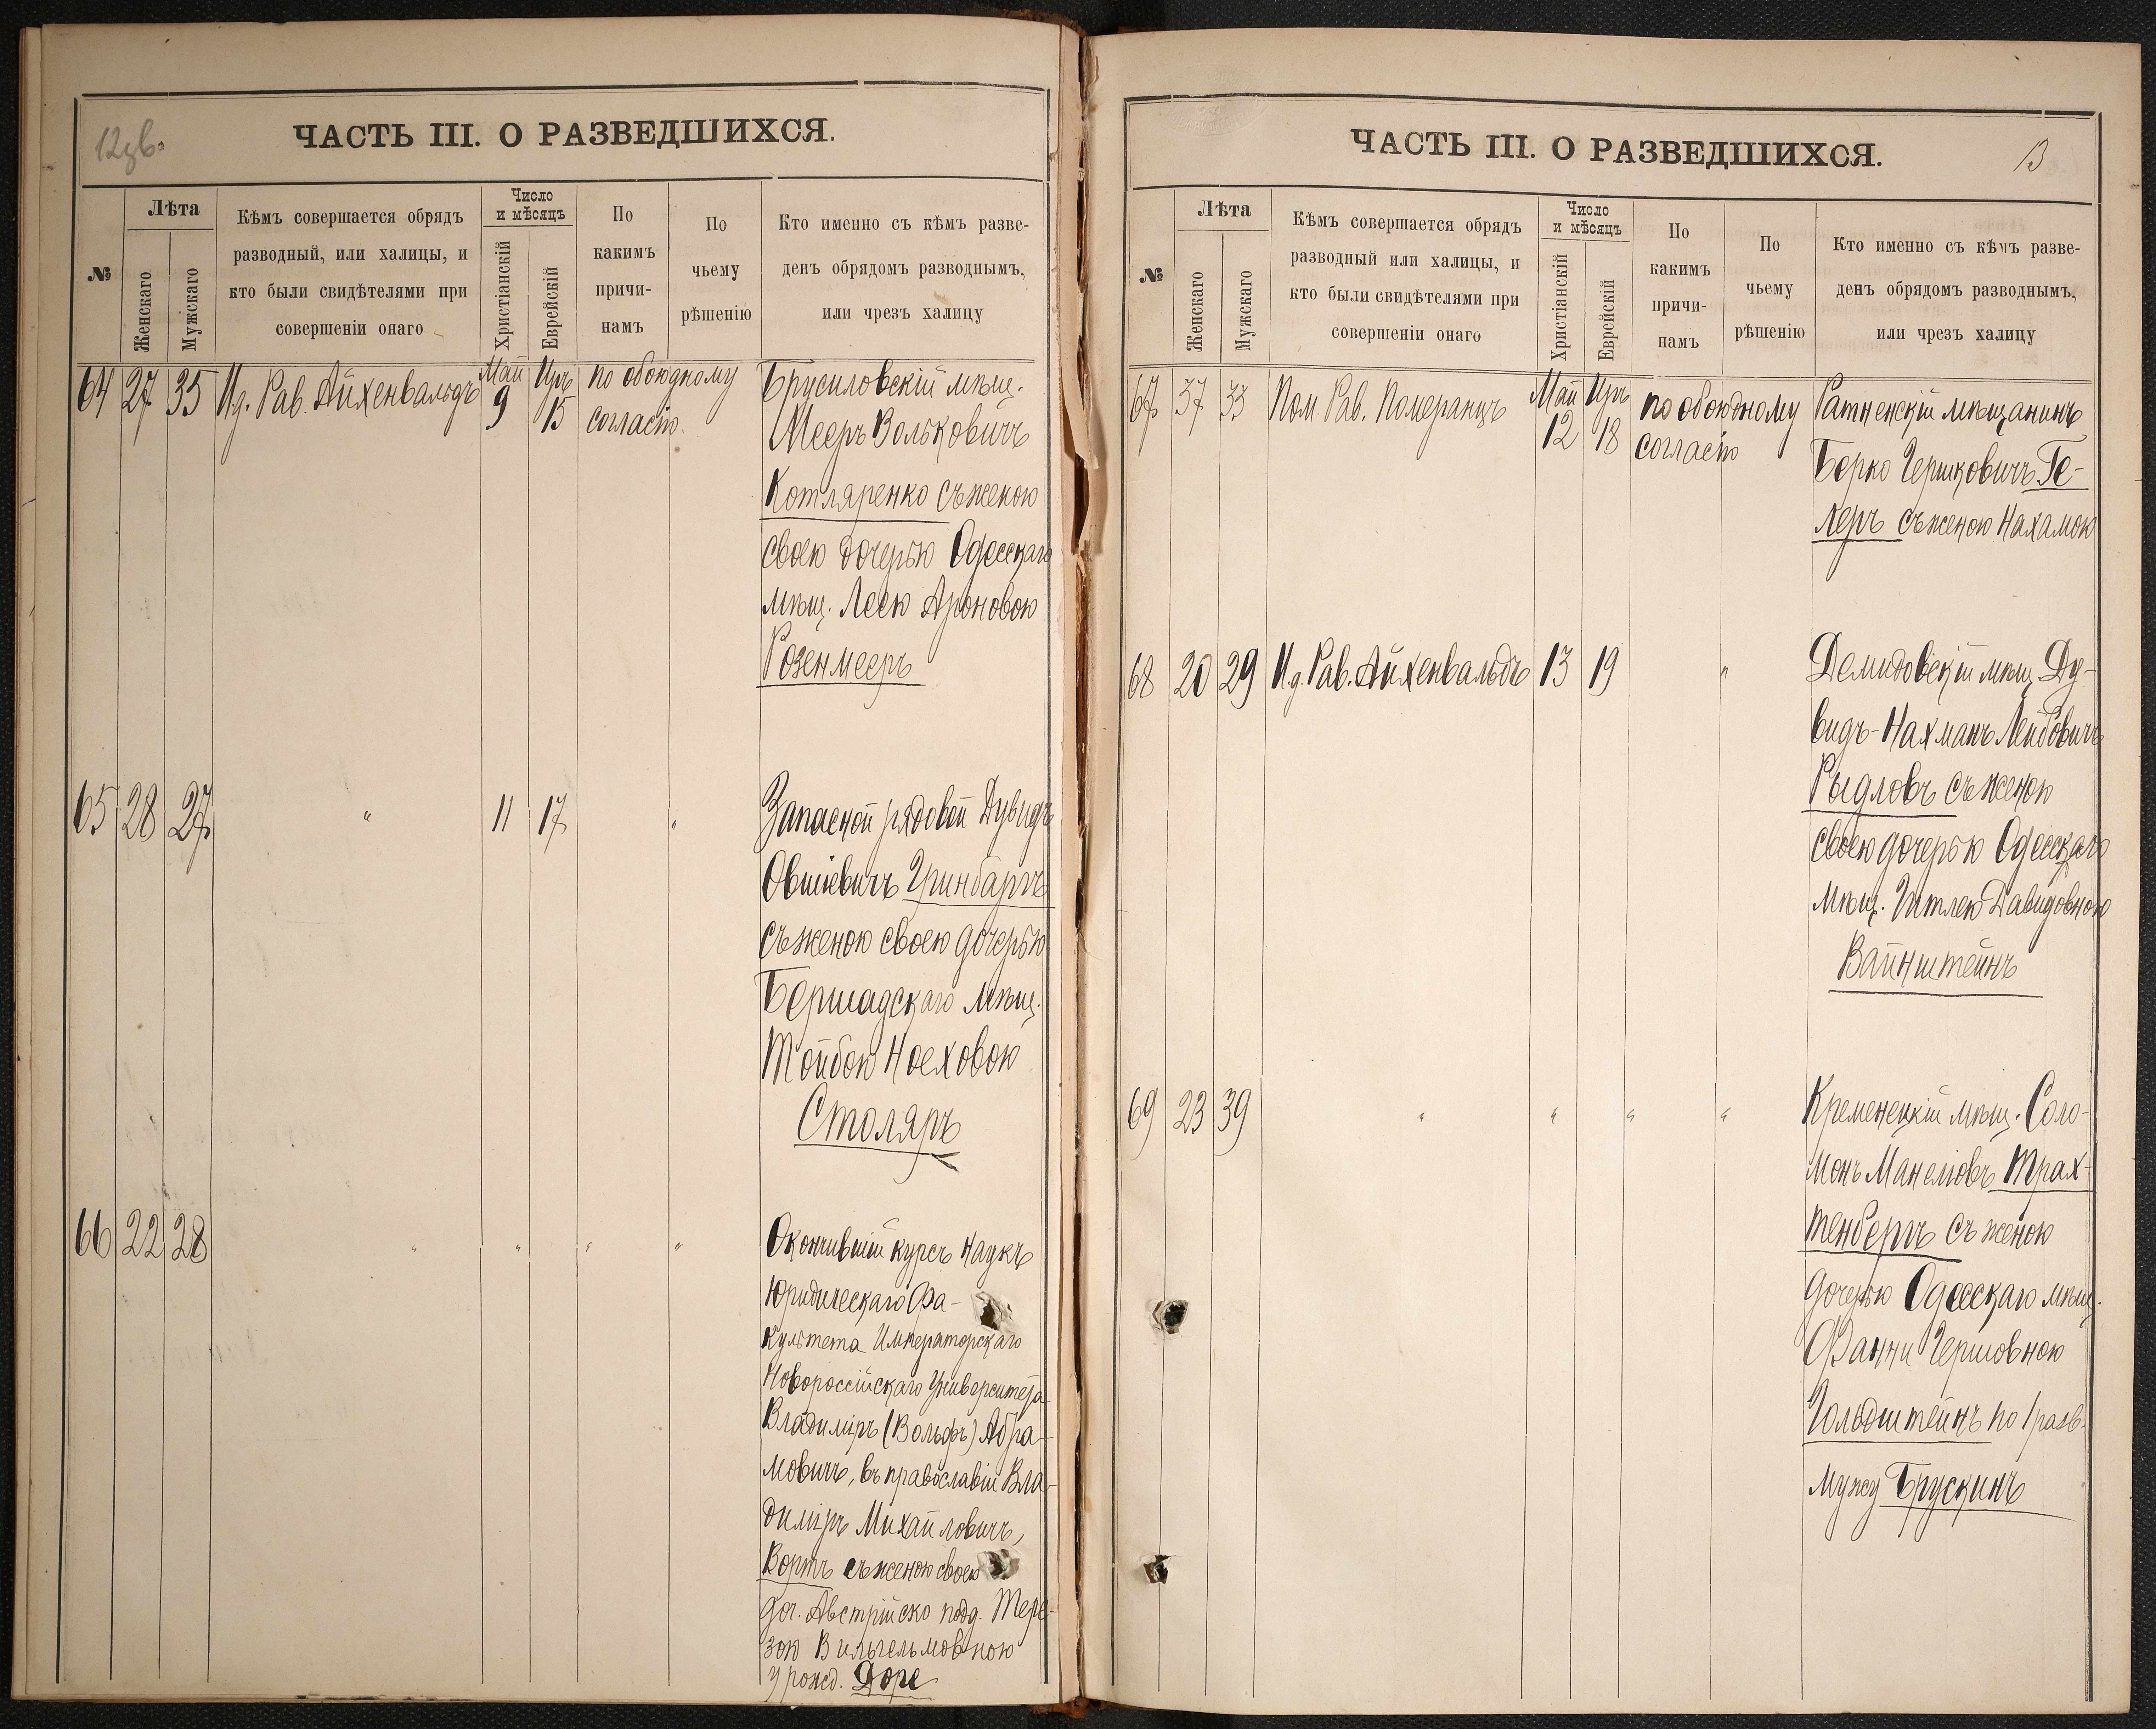 12об.
ЧАСТЬ III. О РАЗВЕДШИХСЯ.
№
Лѣта
Женскаго
Мужскаго
Кѣмъ совершается обрядъ
разводный, или халицы, и
кто были свидѣтелями при
совершеніи онаго
Число
и мѣсяцъ
Христіанскій
Еврейскій
По
какимъ
причи-
намъ
По
чьему
рѣшенію
Кто именно съ кѣмъ разве-
денъ обрядомъ разводнымъ,
или чрезъ халицу
64 27 35 И.д. Рав. Айхенвальдъ Май 9 Иръ 15 по обоюдному
согласію.
Брусиловскій мѣщ.
Мееръ Вольковичъ
Котляренко съ женою
своею дочерью Одесскаго
мѣщ. Леею Ароновою
Розенмееръ
65 28 27 " 11 17 "
Запасной рядовой Дувидъ
Овшіевичъ Гринбаргъ
съ женою своею дочерью
Бершадскаго мѣщ.
Тойбою Ноеховою
Столяръ
66 22 28 " " " "
Окончившій курсъ наукъ
Юридическаго Фа-
культета Императорскаго
Новороссійскаго Университета
Владиміръ (Вольфъ) Абра-
мовичъ, въ православіи Вла-
диміръ Михайловичъ,
Вортъ съ женою своею
доч. Австрійско подд. Тере-
зою Вильгельмовною
урожд. Доре
ЧАСТЬ III. О РАЗВЕДШИХСЯ.
13
№
Лѣта
Женскаго
Мужскаго
Кѣмъ совершается обрядъ
разводный или халицы, и
кто были свидѣтелями при
совершеніи онаго
Число
и мѣсяцъ
Христіанскій
Еврейскій
По
какимъ
причи-
намъ
По
чьему
рѣшенію
Кто именно съ кѣмъ разве-
денъ обрядомъ разводнымъ,
или чрезъ халицу
67 37 33 Пом. Рав. Померанцъ Май 12 Иръ 18 по обоюдному
согласію
Ратненскій мѣщанинъ
Берко Гершковичъ Ге-
леръ съ женою Нахамою
68 20 29 И.д. Рав. Айхенвальдъ 13 19 "
Демидовскій мѣщ. Ду-
видъ-Нахманъ Лейбовичъ
Рыдловъ съ женою
своею дочерью Одесскаго
мѣщ. Гитлею Давидовною
Вайнштейнъ
69 23 39 " " " "
Кременецкій мѣщ. Соло-
монъ Манелювъ Трах-
тенбергъ съ женою
дочерью Одесскаго мѣщ.
Фанни Гершовною
Гольдштейнъ по 1 разв.
мужу Брускинъ